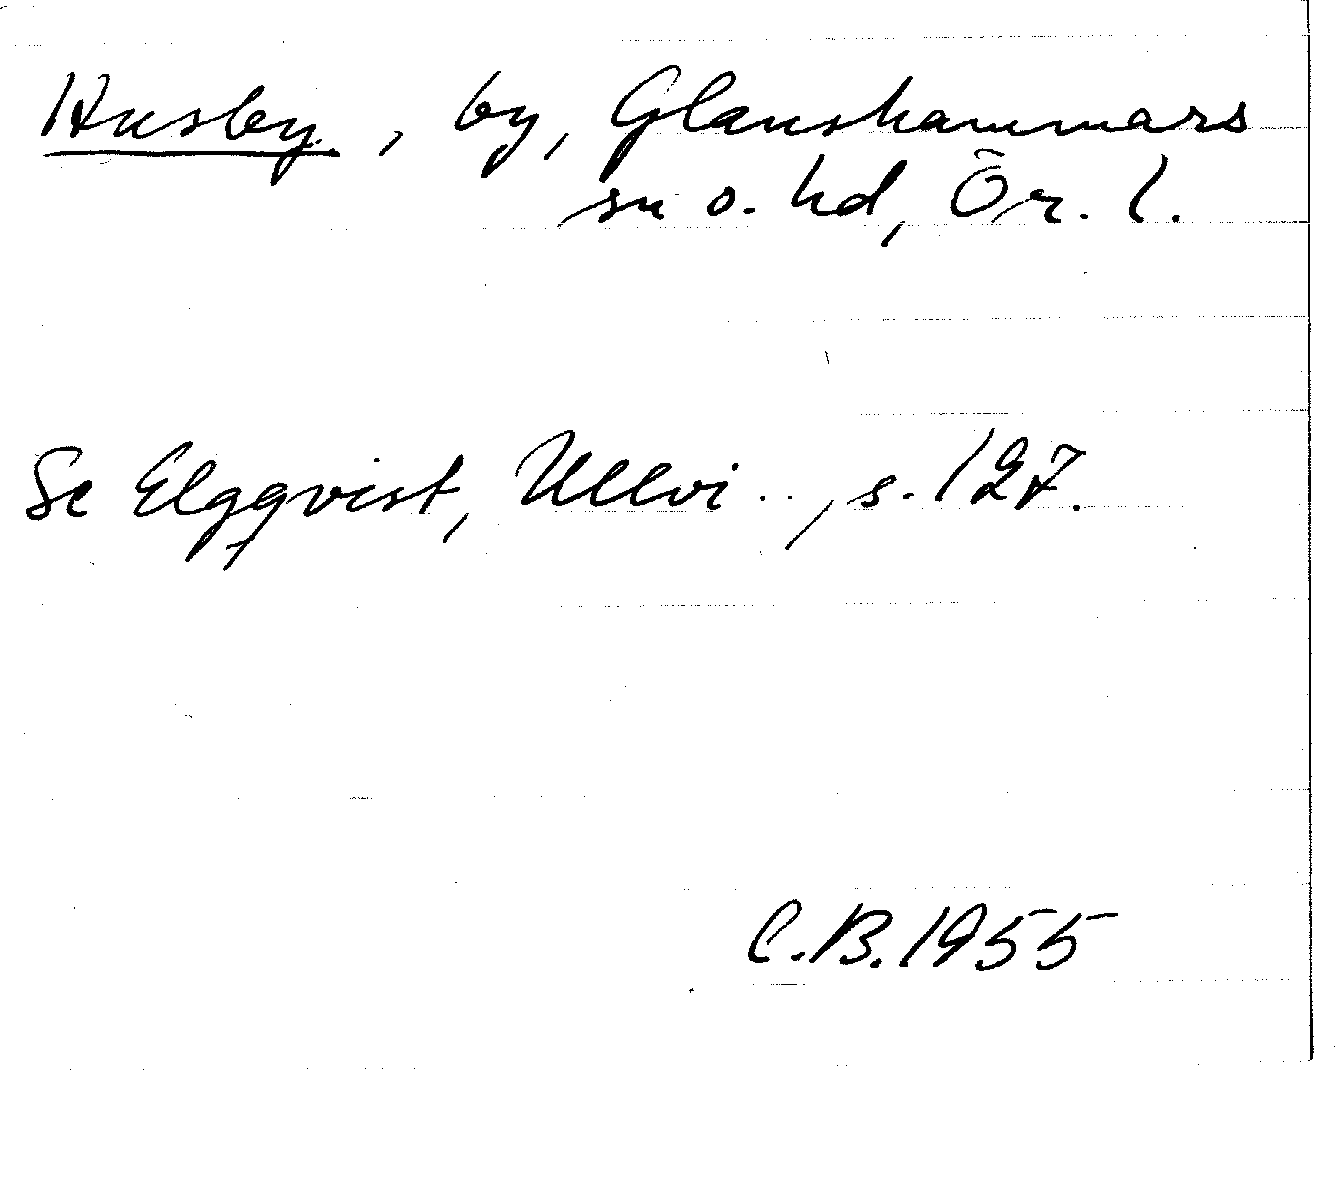 Husby, by, Glanshammars
sn o. hd, Ör. l.
Se Elgqvist, Ullvi .., s. 127.
C.B. 1955